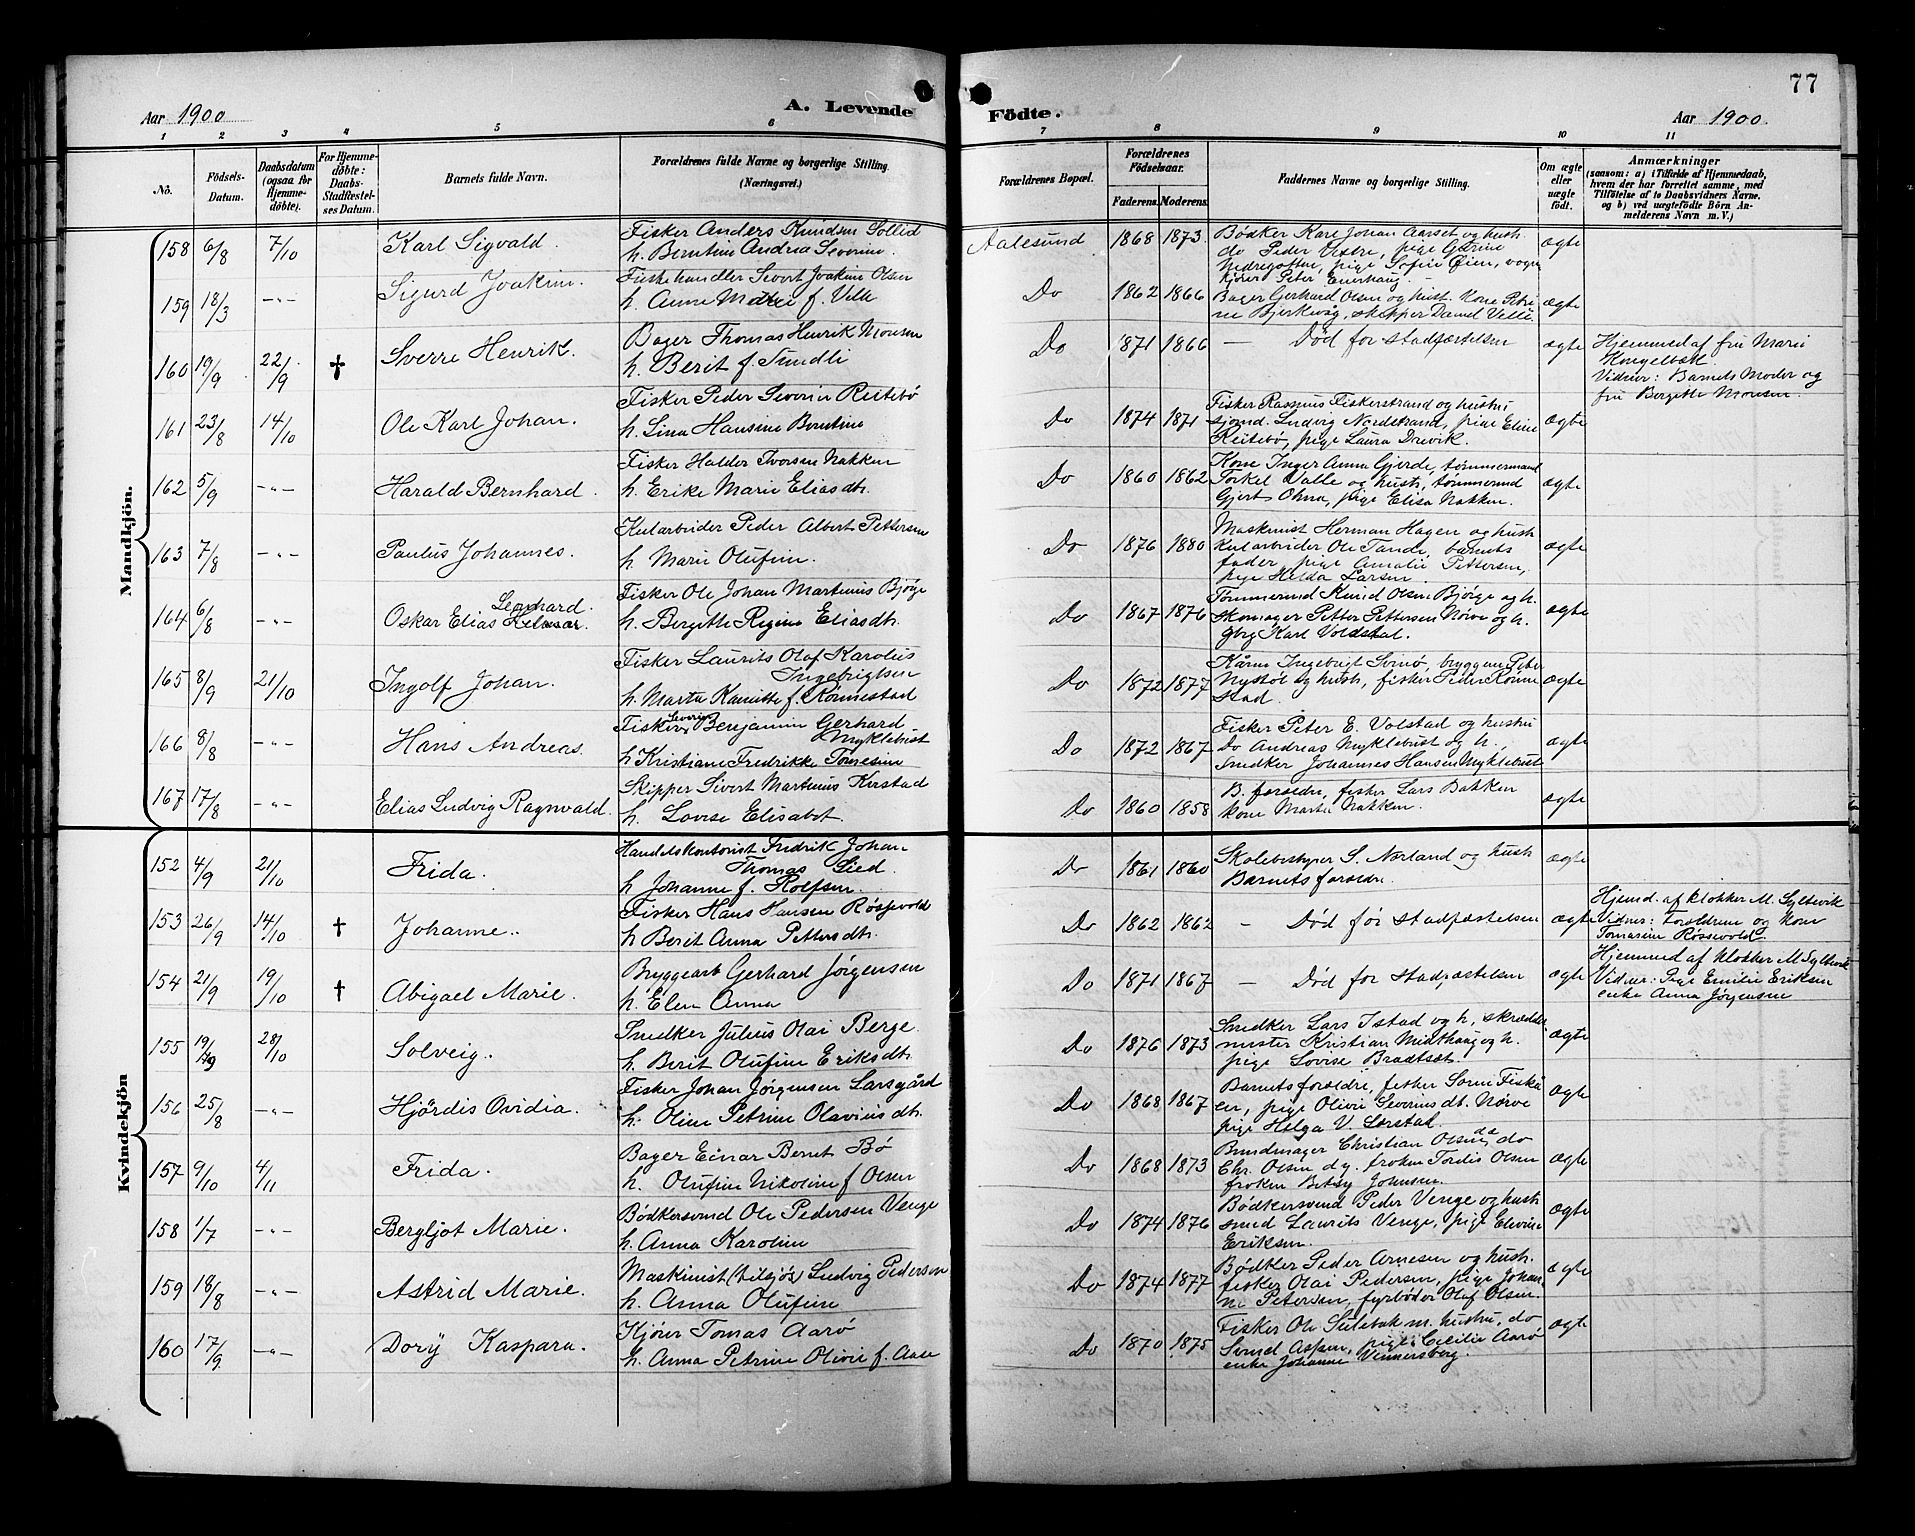 77
Aar 1900
A. Levende
Födte.
Aar 1900.
1 2 3 4 5 6 7 8 9 10 11
No.
Födsels-
Datum.
Daabsdatum
(ogsaa for
Hjemme-
döbte).
For Hjemme-
döbte:
Daabs-
Stadfæstel-
ses Datum.
Barnets fulde Navn.
Forældrenes fulde Navne og borgerlige Stilling.
(Næringsvei.)
Forældrenes Bopæl.
Forældrenes
Födselsaar.
Faderens.
Moderens.
Faddernes Navne og borgerlige Stilling.
Om ægte
eller
uægte
födt.
Anmærkninger
(saasom: a) i Tilfælde af Hjemmedaab,
hvem der har forrettet samme, med
Tilföielse af to Daabsvidners Navne.
og b) ved uægtefödte Börn An-
melderens Navn m. V.)
Mandkjön.
158 6/8 7/10 Karl Sigvald.
Fisker Anders Knudsen Sollid
h. Berntine Andrea Severine.
Aalesund 1868 1873
Bødker Karl Johan Aarset og hust.
do Peder Vestre, pige Gurine
Nedregotten, pige Sofie Øien, vogn
kjører Peter Enerhaug.
ægte
159 18/3 -"- Sigurd Joakim.
Fiskehandler Sivert Joakim Olsen
h. Anne Mothea f. Velle
Do 1862 1866
Bager Gerhard Olsen og hust. Kone Petri
ne Bjerkevåg, skipper Daniel Velle
ægte
160 19/9 22/9 † Sverre Henrik.
Bager Thomas Henrik Monsen
h. Berit f. Sundli
Do 1871 1866
— Død før stadfæstelsen
ægte
Hjemmed af fru Marie
Vidner: Barnets Moder og
fru Bergitte Monsen.
161 23/8 14/10 Ole Karl Johan.
Fisker Peder Severin Reitebø
h. Lina Hansine Berntine
Do 1874 1871
Fisker Rasmus Fiskerstrand og hustru
sjømd. Ludvig Nordstrand, pige Eline
Reitebø, pige Laura Drevik.
ægte
162 5/9 -"- Harald Bernhard.
Fisker Halder Iversen Nakken
h. Erike Marie Eliasdtr.
Do 1860 1862
Kone Inger Anna Gjerde, tømmermand
Torkel Valle og hustr, tømmermd
Gjert Ohna, pige Elisa Nakken.
ægte
163 7/8 -"- Paulus Johannes.
Kularbeider Peder Albert Pettersen
h. Marie Olufine.
Do 1876 1880
Maskinist Herman Hagen og hust.
kularbeider Ole Tande, barnets
fader, pige Amalie Pettersen,
pige Helda Larsen.
ægte
164 6/8 -"- Leonhard.
Oskar Elias
Fisker Ole Johan Martinus Bjørge
h. Bergitte Regine Eliasdtr.
Do 1867 1876
Tømmermd Knud Olsen Bjørge og h.
Skomager Petter Pettersen Nørve og h.
gbrg Karl Voldstal.
ægte
165 8/9 21/10 Ingolf Johan.
Fisker Laurits Olaf Karolus
Ingebrigtsen
h. Marta Kanutte f. Rønnestad
Do 1872 1877
Kårm Ingebrigt Svinø, bryggem Peter
Nystøl og hust, fisker Peder Rønne
stad.
ægte
166 8/8 -"- Hans Andreas.
Fisker Severin Benjamin Gerhard
Myklebust
h. Kristiane Fredrikke Tomesine
Do 1872 1867
Fisker Peter E. Volstad og hustru
Do Andreas Myklebust og h.
Snedker Johannes Hansen Myklebust
ægte
167 17/8 -"- Elias Ludvig Ragnvald.
Skipper Sivert Martinus Kirstad
h. Lovise Elisabet.
Do 1860 1858
B. foreldre, fisker Lars Bakken
kone Marte Nakken.
ægte
Kvindekjön
152 4/9 21/10 Frida.
Handelskontorist Fredrik Johan
Thomas Lied.
h Johanne f. Rolfsen.
Do 1861 1860
Skolebestyrer S. Nørland og hust.
Barnets foreldre.
ægte
153 26/9 14/10 † Johanne.
Fisker Hans Hansen Røssevold
h Berit Anna Pettersdtr.
Do 1862 1862
— Død før stadfæstelsen
ægte
Hjemd. af klokker M. Syltevik
Vidner: Foreldrene og kone
Tomasine Røssevold.
154 21/9 19/10 † Abigael Marie.
Bryggearb Gerhard Jørgensen
h. Elen Anna
Do 1871 1867
— Død for stadfæstelsen
ægte
Hjemmed af klokker M Syltevik
Vidner: Pige Emilie Eriksen
enke Anna Jørgensen
155 19/9 28/10 Solveig.
Snedker Julius Olai Berge.
h. Berit Olufine Eriksdtr.
Do 1876 1873
Snedker Lars Istad og h, skrædder
mester Kristian Midthaug og h.
pige Lovise Bradtset.
ægte
156 25/8 -"- Hjördis Ovidia.
Fisker Johan Jørgensen Larsgård
h. Oline Petrine Olaviusdtr.
Do 1868 1867
Barnets foreldre, fetter Søren Fiskå
er, pige Olivie Severinsdt. Nørve
pige Helga V. Lerstad.
ægte
157 9/10 4/11 Frida.
Bager Einar Bernt Bø
h. Olufine Nikoline f Olsen
Do 1868 1873
Bundmager Christian Olsen, do
Chr. Olsen d.y. frøken Tordis Olsen
frøken Betsy Johnsen.
ægte
158 1/7 -"- Bergljot Marie.
Bødkersvend Ole Pedersen Venge
h. Anna Karoline
Do 1874 1876
Bødkersvend Peder Venge og hust.
smed Laurits Venge, pige Elevine
Eriksen.
ægte
159 18/8 -"- Astrid Marie.
Maskinist (tilsjøs) Ludvig Pedersen
h. Anna Olufine
Do 1874 1877
Bødker Peder Arnesen og hust.
fisker Olai Pedersen, pige Johan
ne Petersen, fyrbøder Olaf Olsen.
ægte
160 17/9 -"- Dorÿ Kaspara.
Kjører Tomas Aarø
h. Anna Petrine Olivie f. Aase
Do 1870 1875
Fisker Ole Sulebak m. hustru, do
Svend Aspen, pige Cecilie Aarø
enke Johanne Vennersberg.
ægte